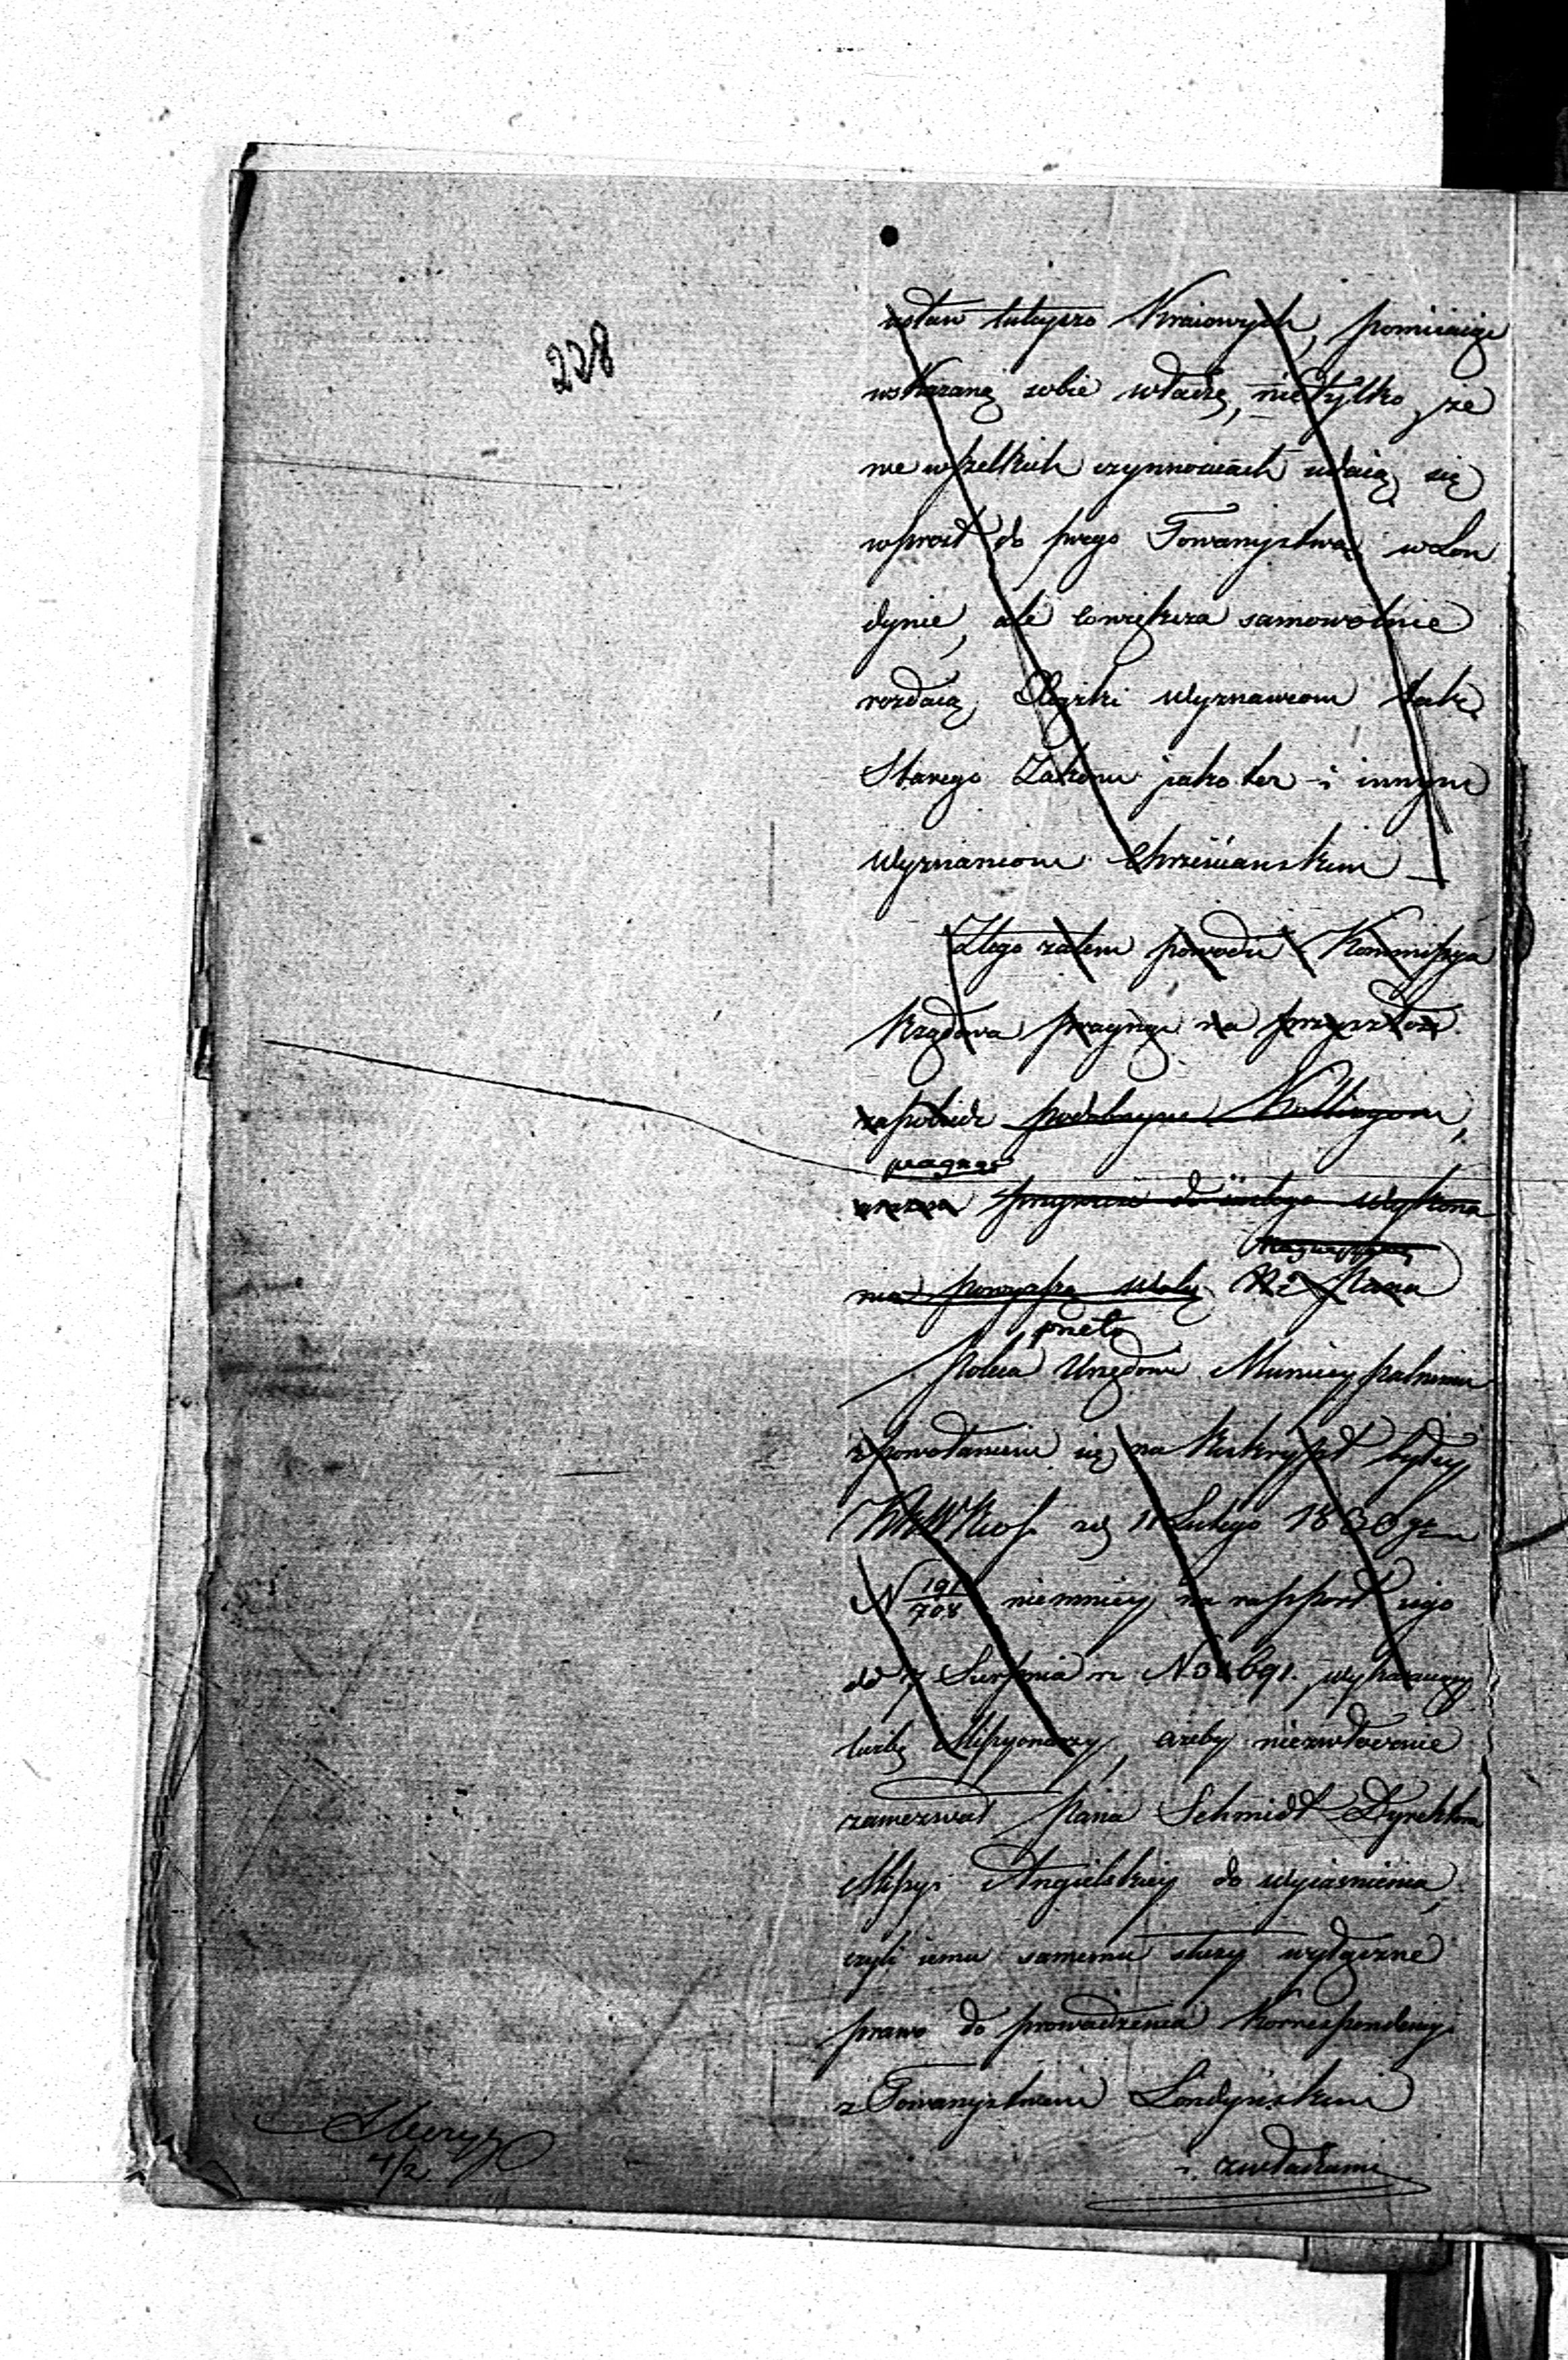 228
ustaw tuteyszo Kraiowych, pomiiaiąc
wskazaną sobie władzę, nietylko że
we wszelkich czynnościach udaią się
wprost do swego Towarzystwa w Lon
dynie, ale co większa samowolnie
rozdaią Xiążki wyznawcom tak
Starego Zakonu jako też i innym
Wyznaniom Chrześcianskim
Z tego zatem powodu Kommissya
Rządowa pragnąc na przyszłość
zapobiedz podobnym Kollizyom,
pragnąc
do ścisłego wykona
nia powyższą
przeto
Poleca Urzędowi Municypalnemu
z powołaniem się na Reskrypt byłey
z d 11 Lutego 1830 g
N 191/708 niemniey na rapport iego
od 7 Sierpnia r. N wykazuiący
liczbę Missyonarzy, ażeby niezwłocznie
zawezwał Pana Schmidt Dyrektora
Missyi Angielskiey do wyiasnienia,
czyli iemu samemu służy wyłączne
prawo do prowadzenia Korrespondencyi
z Towarzystwem Londyńskim
i z władzami
4/2